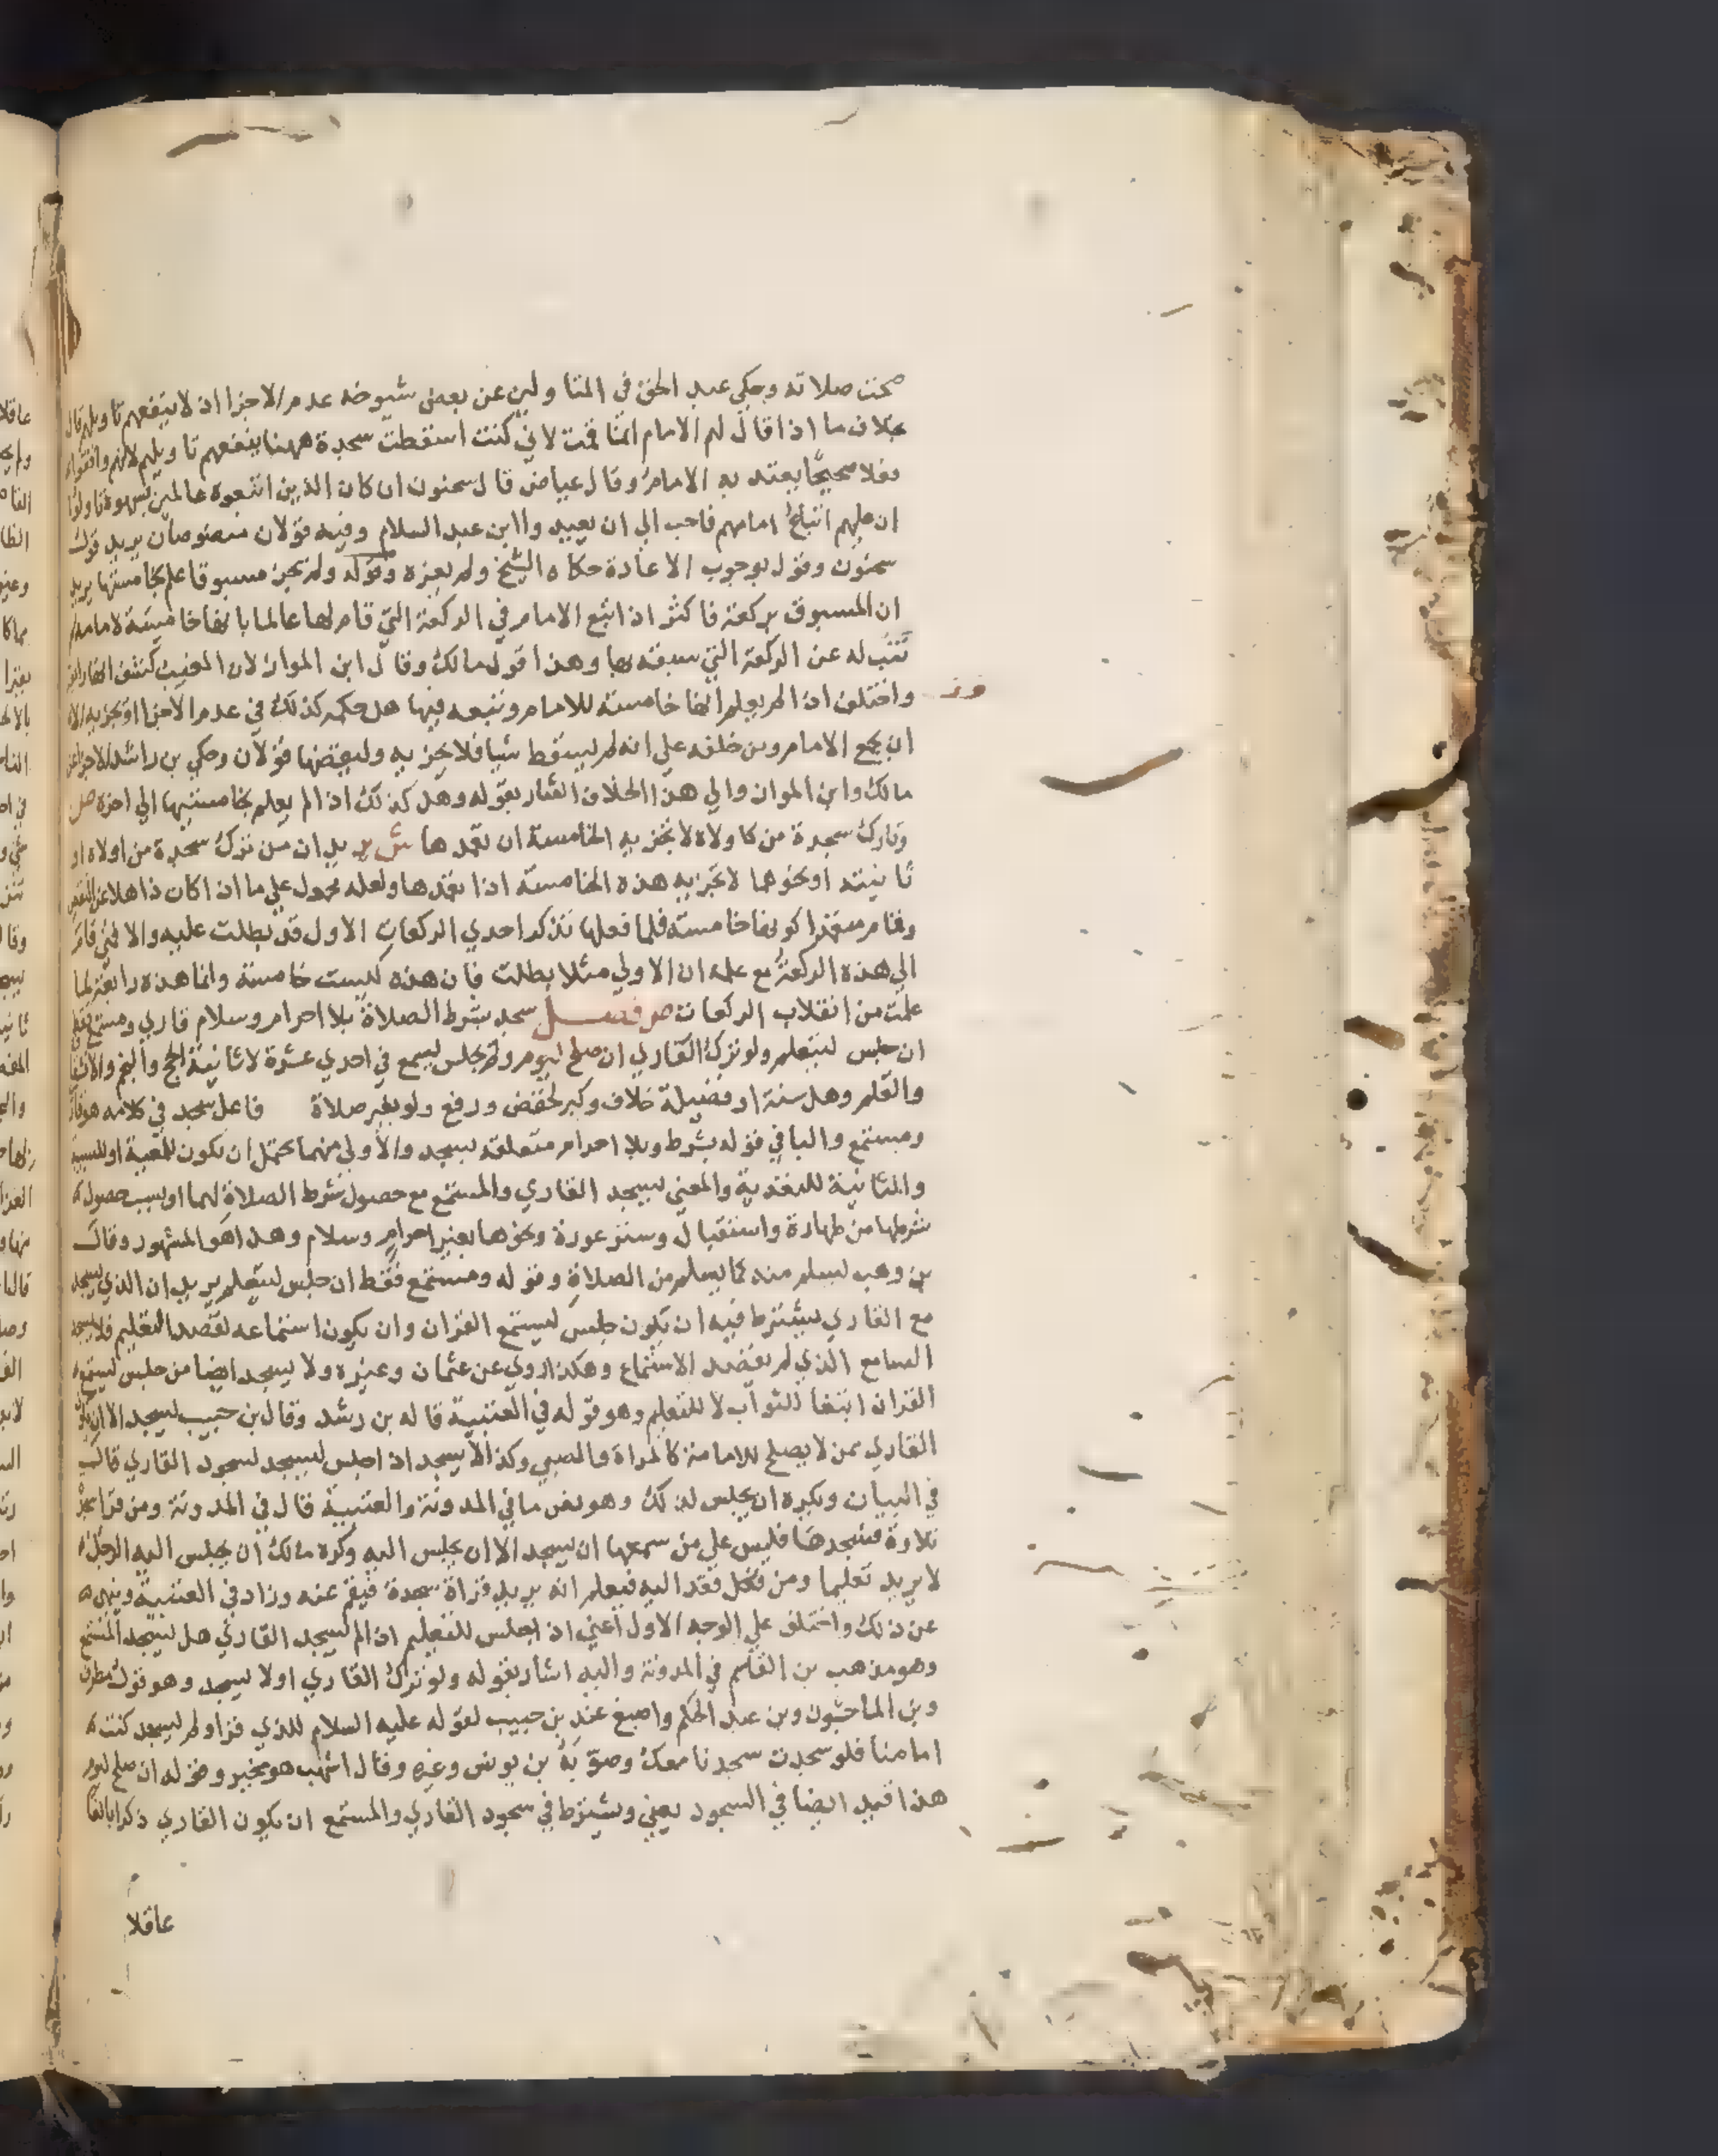 صحت صلاته وحكي عبد الحق في المتاولين عن بعض شيوخه عدم الاجزا اذ لا ينفعهم تاويلهم قال
بخلاف ما اذا قال لهم الامام انما قمت لاني كنت اسقطت سجدة فههنا ينفعهم تاويلهم لانهم وافقوا
فعلا صحيحا يعتد به الامام وقال عياض قال سحنون ان كان الذين اتبعوه عالمين بسهوه تاولوا
ان عليهم اتباع امامهم فاحب الي ان يعيدوا ابن عبد السلام وفيه قولان منصوصان يريد قول
سحنون وقول بوجوب الاعادة حكاه الشيخ ولم يعزه وقوله ولم تجز مسبوقا علم بخامستها يريد
ان المسبوق بركعة فاكثر اذا تبع الامام في الركعة التي قام لها عالما بانها خامسة لامامه لم
تنب له عن الركعة التي سبقه بها وهذا قول مالك وقال ابن المواز لان المغيب كشف انها رابعة
واختلف اذا لم يعلم انها خامسة للامام وتبعه فيها هل حكمه كذلك في عدم الاجزا او تجزيه الا
ان يجمع الامام ومن خلفه علي انه لم يسقط شيا فلا تجزيه ولبعضها قولان وحكي بن راشد الاجزا عن
مالك وابن المواز والي هذا الخلاف اشار بقوله وهل كذلك اذا لم يعلم بخامستيها الي اخره ص
وتارك سجدة من كاولاه لا تجزيه الخامسة ان تعمدها ش يريد ان من ترك سجدة من اولاه او
ثانيته او نحوهما لا تجزيه هذه الخامسة اذا تعمدها ولعله محمول علي ما اذا كان ذاهلا عن النقص
وقام متعمدا كونها خامسة فلما فعلها تذكر احدي الركعات الاول قد بطلت عليه والا فمتي قام
الي هذه الركعة مع علمه ان الاولي مثلا بطلت فان هذه ليست خامسة وانما هذه رابعة لما
علمت من انقلاب الركعات ص فصل سجد بشرط الصلاة بلا احرام وسلام قاري ومستمع فقط
ان جلس ليتعلم ولو ترك القاري ان صلح ليوم ولم يجلس ليسمع في احدي عشرة لا ثانية الحج والنجم والانشقاق
والقلم وهل سنة او فضيلة خلاف وكبر لخفض ورفع ولو بغير صلاة فاعل سجد في كلامه هو قاري
ومستمع والبا في قوله بشرط وبلا احرام متعلقة بسجد والاولي منهما تحتمل ان تكون للمعية او للسببية
والثانية للتعدية والمعني ليسجد القاري والمستمع مع حصول شرط الصلاة لهما او بسبب حصول
شرطها من طهارة واستقبال وستر عورة ونحوها بغير احرام وسلام وهذا هو المشهور وقال
بن وهب ليسلم منه كما يسلم من الصلاة وقوله ومستمع فقط ان جلس ليتعلم يريد ان الذي يسجد
مع القاري يشترط فيه ان يكون جلس ليستمع القران وان يكون استماعه لقصد التعليم فلا يسجد
السامع الذي لم يقصد الاستماع وهكذا روي عن عثمان وغيره ولا يسجد ايضا من جلس ليستمع
القران ابتغا للثواب لا للتعلم وهو قوله في العتبية قاله بن رشد وقال بن حبيب ليسجد الا ان يكون
القاري ممن لا يصلح للامامة كالمراة والصبي وكذا لا يسجد اذا جلس ليسجد لسجود القاري قال
في البيان ويكره ان يجلس لذلك وهو نص ما في المدونة والعتبية قال في المدونة ومن قرا سجدة
تلاوة فسجدها فليس علي من سمعها ان يسجد الا ان يجلس اليه وكره مالك ان يجلس اليه الرجل
لا يريد تعليما ومن فعل فقعد اليه فيعلم انه يريد قراة سجدة فيقم عنه وزاد في العتبية وينهي
عن ذلك واختلف علي الوجه الاول اعني اذا جلس للتعليم اذا لم يسجد القاري هل يسجد المستمع
وهو مذهب بن القاسم في المدونة واليه اشار بقوله ولو ترك القاري او لا يسجد وهو قول مطرف
وبن الماجشون وبن عبد الحكم واصبغ عند بن حبيب لقوله عليه السلام للذي قرا ولم يسجد كنت
امامنا فلو سجدت سجدنا معك وصوبه بن يونس وغيره وقال اشهب هو مخير وقوله ان صلح ليوم
هذا قيد ايضا في السجود يعني ويشترط في سجود القاري والمستمع ان يكون القاري ذكرا بالغا
عاقلا